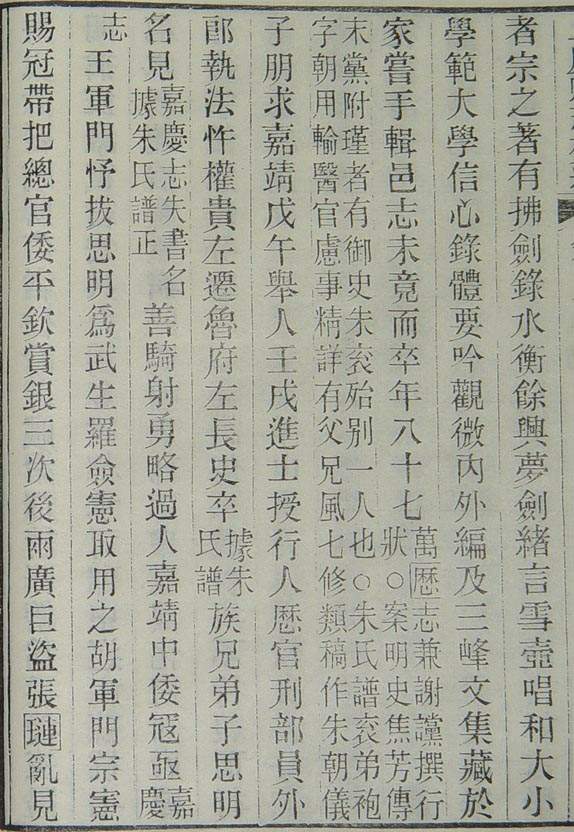 者宗之著有拂劍錄水衡餘興夢劍緒言雪壺唱和大小
學範大學信心錄體要吟觀微內外編及三峰文集藏於
家嘗手輯邑志未竟而卒年八十七萬歷志兼謝讜撰行狀○案明史焦芳傳
末黨附瑾者有御史朱袞殆別一人也○朱氏譜袞弟袍
字朝用輸醫官慮事精詳有父兄風七修類稿作朱朝儀
子朋求嘉靖戊午舉人壬戌進士授行人歷官刑部員外
郎執法忤權貴左遷魯府左長史卒據朱氏譜族兄弟子思明
名見嘉慶志失書名據朱氏譜正善騎射勇略過人嘉靖中倭寇亟嘉慶
志王軍門忬拔思明爲武生羅僉憲取用之胡軍門宗憲
賜冠帶把總官倭平欽賞銀三次後兩廣巨盜張璉亂見